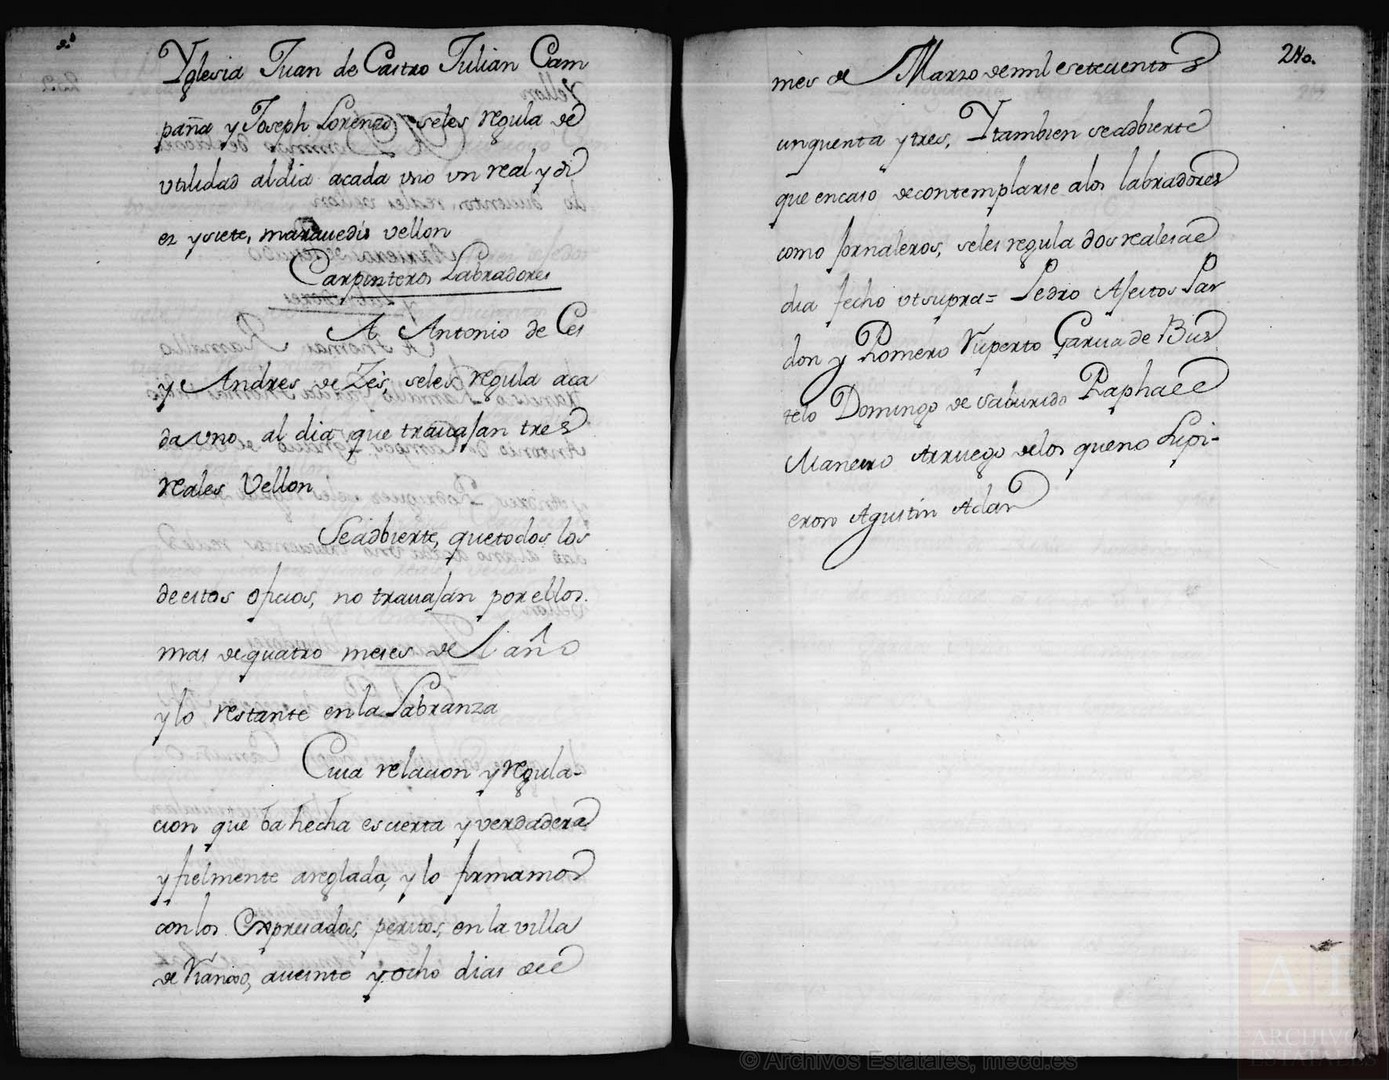 Yglesia Juan de Castro Julian Cam
paña y Joseph Lorenzo seles regula de
vtilidad aldia acada vno vn real y di
ez ysiete, maravedis vellon
Carpinteros Labradores
A Antonio de Ces
y Andres de Zes, seles regula aca
da vno al dia que travajan tres
reales Vellon
Seadbierte, quetodos los
deestos oficios, no travajan por ellos
mas de quatro meses del año
y lo restante en la Labranza
Cuia relacion y regula-
cion que ba hecha es cierta y verdadera
y fielmente areglada, y lo firmamos
con los Expresados, peritos, en la villa
de Vianzo, aveinte y ocho dias del
240.
mes de Marzo demil setecientos
cinquenta ytres, Ytambien seadbierte
que encaso decontemplarse alos labradores
como jornaleros, seles regula dos reales ãe
dia fecho vtsupra= Pedro Afectos Par
don y Romero Ruperto Garcia de Bus
telo Domingo de Saburido Raphael
Maneiro Arruego delos queno supi-
eron Agustin Adan
© Archivos Estatales, mecd.es
ARCHIVOS
ESTATALES